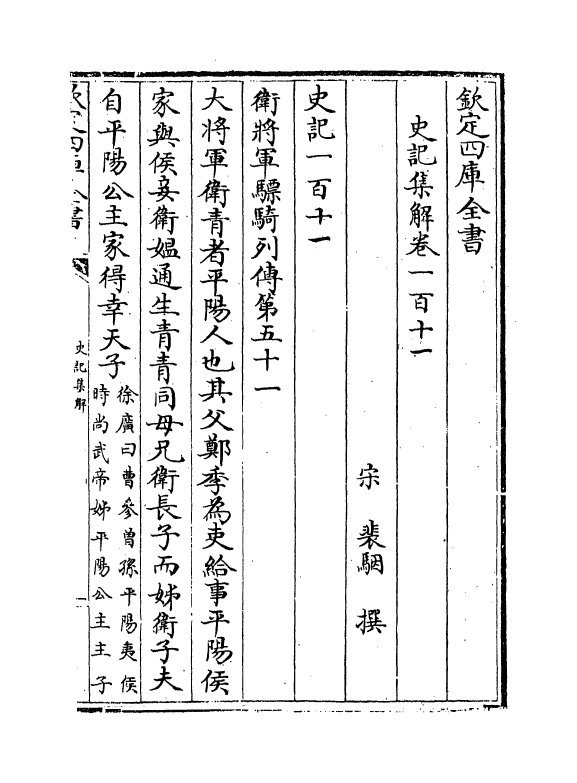 欽定四庫全書
史記集解卷一百十一
宋 裴駰 撰
史記一百十一
衛將軍驃騎列傳第五十一
大將軍衛青者平陽人也其父鄭季為吏給事平陽侯
家與侯妾衛媪通生青青同母兄衛長子而姊衛子夫
自平陽公主家得幸天子
徐廣曰曹參曾孫平陽夷侯
時尚武帝姊平陽公主主子
欽定四庫全書
史記集解
一